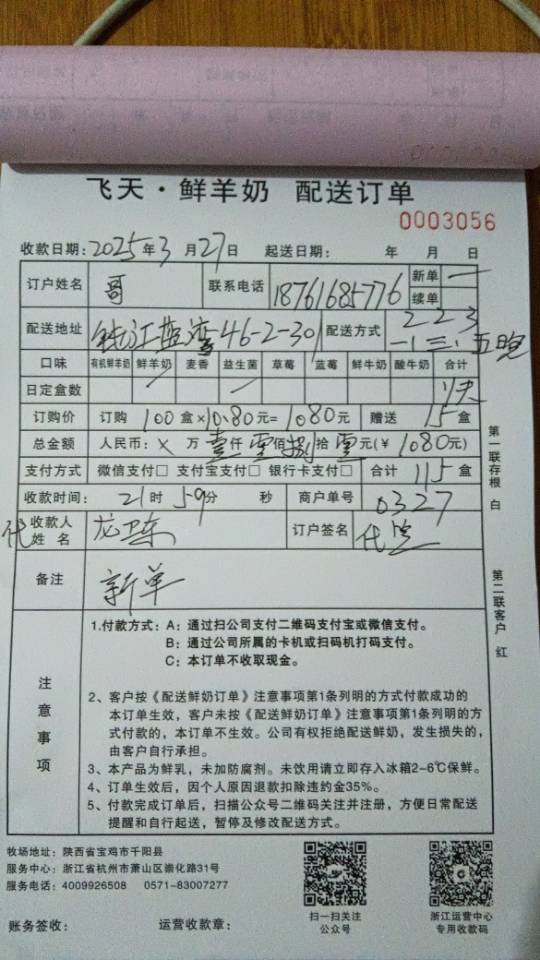 飞天·鲜羊奶 配送订单
0003056
收款日期:2025年3月27日 起送日期: 年 月 日
订户姓名 哥 联系电话 18761685776 新单 一
续单
配送地址 钱江 湾46-2-301 配送方式 2 2 3
一、三、五晚
口味 有机鲜羊奶 鲜羊奶 麦香 益生菌 草莓 蓝莓 鲜牛奶 酸牛奶 合计
日定盒数 一 一 1/天
订购价 订购 100 盒×10.80元=1080元 赠送 15盒
总金额 人民币:× 万 壹仟 零佰 捌拾 零元(¥ 1080元)
支付方式 微信支付□ 支付宝支付□ 银行卡支付□ 合计 115盒
收款时间: 21时 59分 秒 商户单号 0327
代 收款人姓名 龙卫东 订户签名 代签
备注 新单
注意事项
1.付款方式:A:通过扫公司支付二维码支付宝或微信支付。
B:通过公司所属的卡机或扫码机打码支付。
C:本订单不收取现金。
2、客户按《配送鲜奶订单》注意事项第1条列明的方式付款成功的
本订单生效，客户未按《配送鲜奶订单》注意事项第1条列明的方
式付款的，本订单不生效。公司有权拒绝配送鲜奶，发生损失的，
由客户自行承担。
3、本产品为鲜乳，未加防腐剂。未饮用请立即存入冰箱2-6℃保鲜。
4、订单生效后，因个人原因退款扣除违约金35%。
5、付款完成订单后，扫描公众号二维码关注并注册，方便日常配送
提醒和自行起送，暂停及修改配送方式。
第一联存根 白
第二联客户 红
牧场地址：陕西省宝鸡市千阳县
服务中心：浙江省杭州市萧山区崇化路31号
服务电话：4009926508 0571-83007277
账务签收： 运营收款章：
扫一扫关注
公众号
浙江运营中心
专用收款码